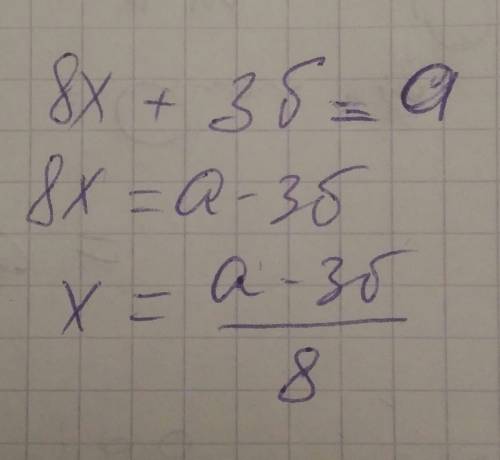 8x + 3б = a
8x = a - 3б
x = \frac{a - 3б}{8}